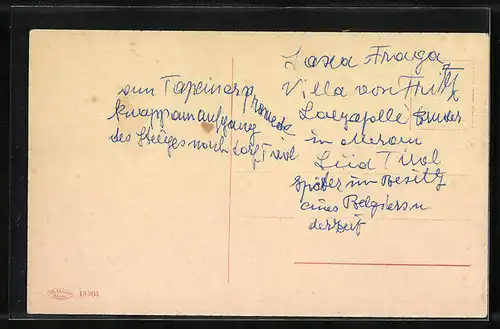 am Tapeinerpromenade
knapp am aufgang
des Steiges nach Dorf Tirol
Casa Fraga
Villa von Fritz
Loezapelle Bruder
in Meran
Süd Tirol
Später im Besitz
eines Belgiers
derzeit
13301